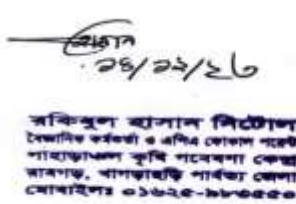 ১৪/১২/২৩
রকিবুল হাসান লিটোন
বৈজ্ঞানিক কর্মকর্তা ও এপিএ ফোকাল পয়েন্ট
পাহাড়াঞ্চল কৃষি গবেষণা কেন্দ্র
রামগড়, খাগড়াছড়ি পার্বত্য জেলা
মোবাইলঃ